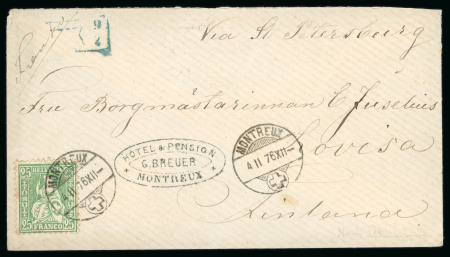 9
4
Via St Petersburg
Franco
Fru Borgmästarinnan E Juselius
Lovisa
Finland
HOTEL & PENSION
G. BREUER
MONTREUX
MONTREUX
4 II 76 XII-
MONTREUX
76 XII-
25 HELV 25
25 FRANCO 25